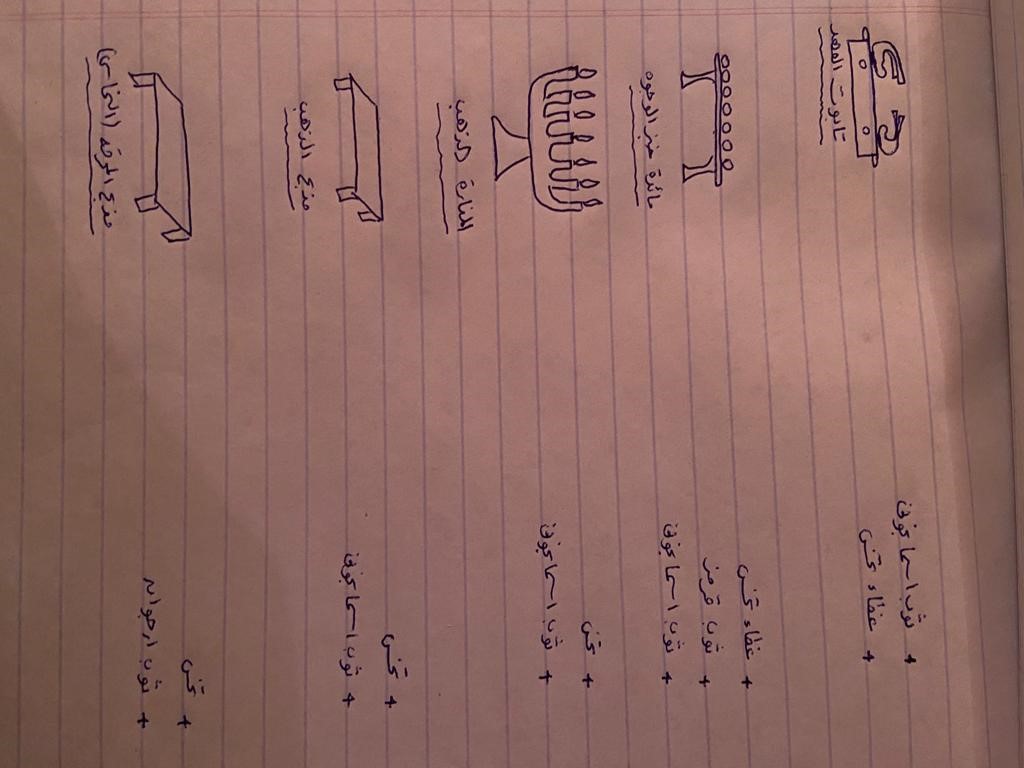 + ثوب اسمانجوني
+ غطاء تخس
تابوت العهد
+ غطاء تخس
+ ثوب قرمز
+ ثوب اسمانجوني
مائدة خبز الوجوه
+ تخس
+ ثوب اسمانجوني
المنارة الذهب
+ تخس
+ ثوب اسمانجوني
مذبح الذهب
+ تخس
+ ثوب ارجوان
مذبح المحرقة (النحاس)